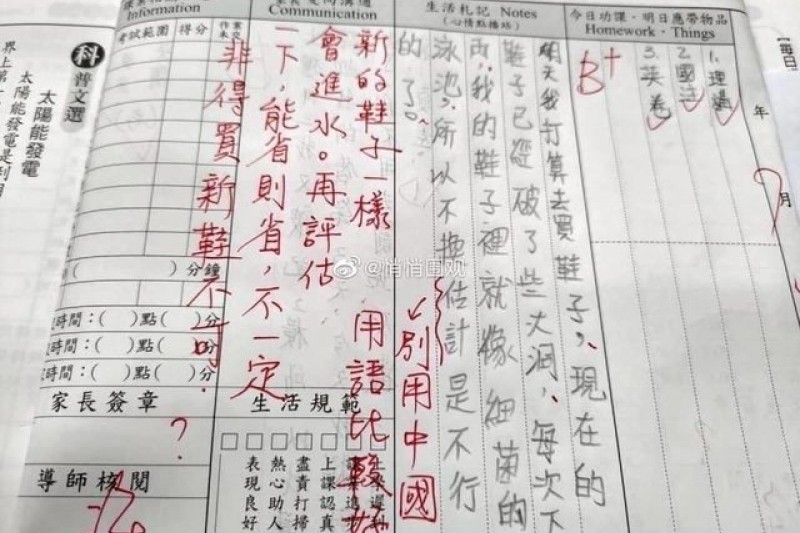 【每日
年
月
今日功課・明日應帶物品
Homework・Things
1.理
2.國
3.英卷
B+
生活札記 Notes
(心情點播站)
明天我打算去買鞋子,現在的
鞋子已經破了些大洞,每次下
雨,我的鞋子裡就像細菌的
泳池,所以不換估計是不行
的了。
別用中國
用語比較好
溝通
Communication
新的鞋子一樣
會進水。再評估
一下,能省則省,不一定
非得買新鞋不可.
?
生活規範
上課認真
盡責打掃
熱心助人
表現良好
Information
考試範圍 得分 作業未交
( )分鐘
時間:( )點( )分
時間:( )點( )分
時間:( )點( )分
家長簽章
導師核閱
科普文選
太陽能發電
太陽能發電是利用
界上第一
@悄悄围观